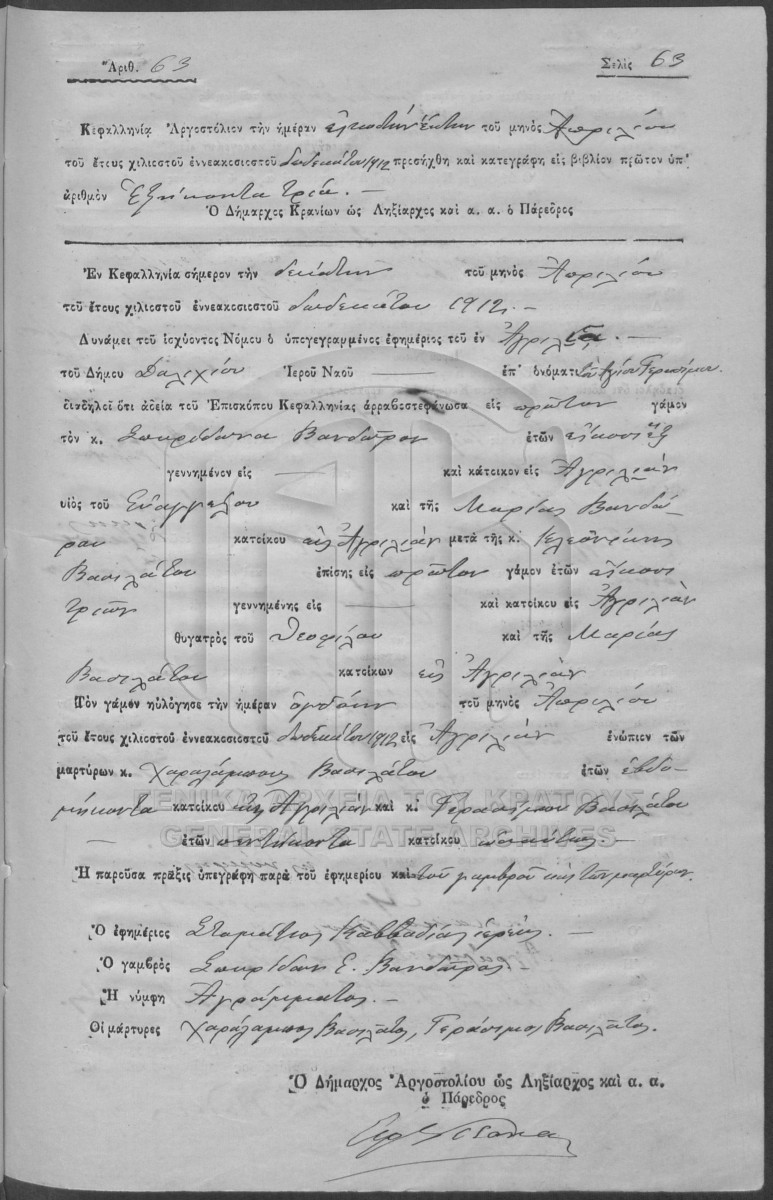 Ἀριθ. 63 Σελὶς 63
Κεφαλληνίᾳ Ἀργοστόλιον τὴν ἡμέραν εἰκοστὴν ἕκτην τοῦ μηνὸς Ἀπριλίου
τοῦ ἔτους χιλιοστοῦ ἐννεακοσιοστοῦ δωδεκάτου 1912 προσήχθη καὶ κατεγράφη εἰς βιβλίον πρῶτον ὑπ'
ἀριθμὸν Ἑξήκοντα τρία. —
Ὁ Δήμαρχος Κρανίων ὡς Ληξίαρχος καὶ α. α. ὁ Πάρεδρος
Ἐν Κεφαλληνίᾳ σήμερον τὴν δεκάτην τοῦ μηνὸς Ἀπριλίου
τοῦ ἔτους χιλιοστοῦ ἐννεακοσιοστοῦ δωδεκάτου 1912. —
Δυνάμει τοῦ ἰσχύοντος Νόμου ὁ ὑπογεγραμμένος ἐφημέριος τοῦ ἐν —
τοῦ Δήμου Δολιχίου Ἱεροῦ Ναοῦ — ἐπ' ὀνόματι τοῦ Ἁγίου Γερασίμου
διαδηλοῖ ὅτι ἀδείᾳ τοῦ Ἐπισκόπου Κεφαλληνίας ἀρραβοστεφάνωσα εἰς πρῶτον γάμον
τὸν κ. Σπυρίδωνα Βανδῶρον ἐτῶν εἴκοσι ἓξ
γεννημένον εἰς — καὶ κάτοικον εἰς Ἀγριλιὰν
υἱὸς τοῦ Εὐαγγέλου καὶ τῆς Μαρίας Βανδώ-
ρου κατοίκου εἰς Ἀγριλιὰν μετὰ τῆς κ. Κλεονίκης
Βασιλάτου ἐπίσης εἰς πρῶτον γάμον ἐτῶν εἴκοσι
τριῶν γεννημένης εἰς — καὶ κατοίκου εἰς Ἀγριλιὰν
θυγατρὸς τοῦ Θεοφίλου καὶ τῆς Μαρίας
Βασιλάτου κατοίκων εἰς Ἀγριλιὰν
Τὸν γάμον ηὐλόγησε τὴν ἡμέραν ὀγδόην τοῦ μηνὸς Ἀπριλίου
τοῦ ἔτους χιλιοστοῦ ἐννεακοσιοστοῦ δωδεκάτου 1912 εἰς Ἀγριλιὰν ἐνώπιον τῶν
μαρτύρων κ. Χαραλάμπους Βασιλάτου ἐτῶν ἑβδο-
μήκοντα κατοίκου εἰς Ἀγριλιὰν καὶ κ. Γερασίμου Βασιλάτου
— ἐτῶν πεντήκοντα κατοίκου —
Ἡ παροῦσα πρᾶξις ὑπεγράφη παρὰ τοῦ ἐφημερίου καὶ τοῦ γαμβροῦ καὶ τῶν μαρτύρων.
Ὁ ἐφημέριος Σταμάτιος Καββαδίας ἱερεύς. —
Ὁ γαμβρὸς Σπυρίδων Ε. Βανδῶρος —
Ἡ νύμφη Ἀγράμματος. —
Οἱ μάρτυρες Χαράλαμπος Βασιλᾶτος, Γεράσιμος Βασιλᾶτος.
Ὁ Δήμαρχος Ἀργοστολίου ὡς Ληξίαρχος καὶ α. α.
ὁ Πάρεδρος
ΓΕΝΙΚΑ ΑΡΧΕΙΑ ΤΟΥ ΚΡΑΤΟΥΣ
GENERAL STATE ARCHIVES